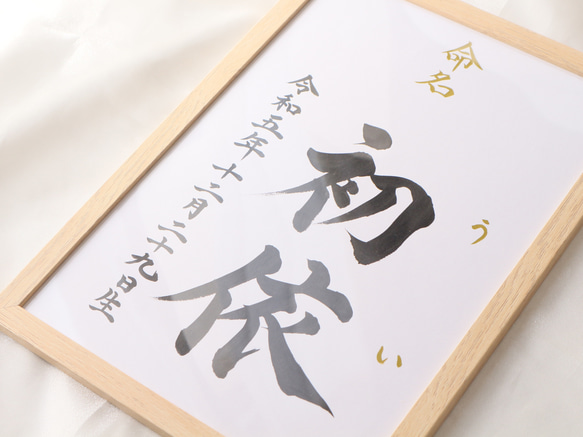 命名
うい
初依
令和五年十二月二十九日生